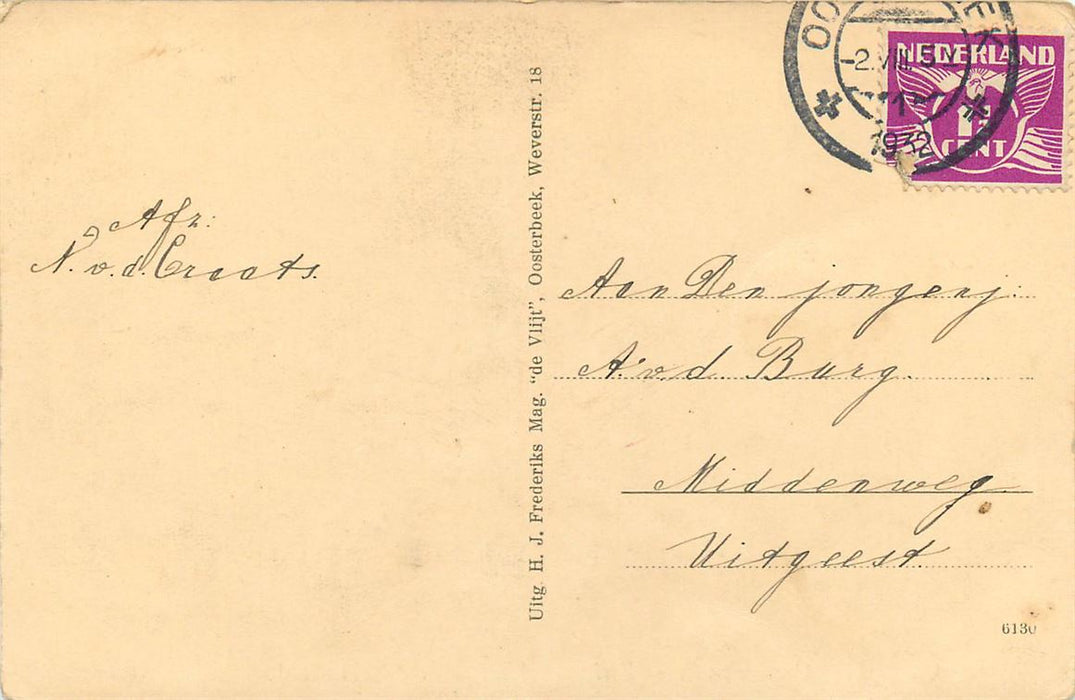 Afz:
N. v. d. Craats.
Uitg. H. J. Frederiks Mag. "de Vlijt", Oosterbeek, Weverstr. 18
OO EK
-2.VIII.32
1
1932
NEDERLAND
1½
CENT
Aan Den jongenj:
A. v. d. Burg.
Middenweg
Uitgeest.
6130